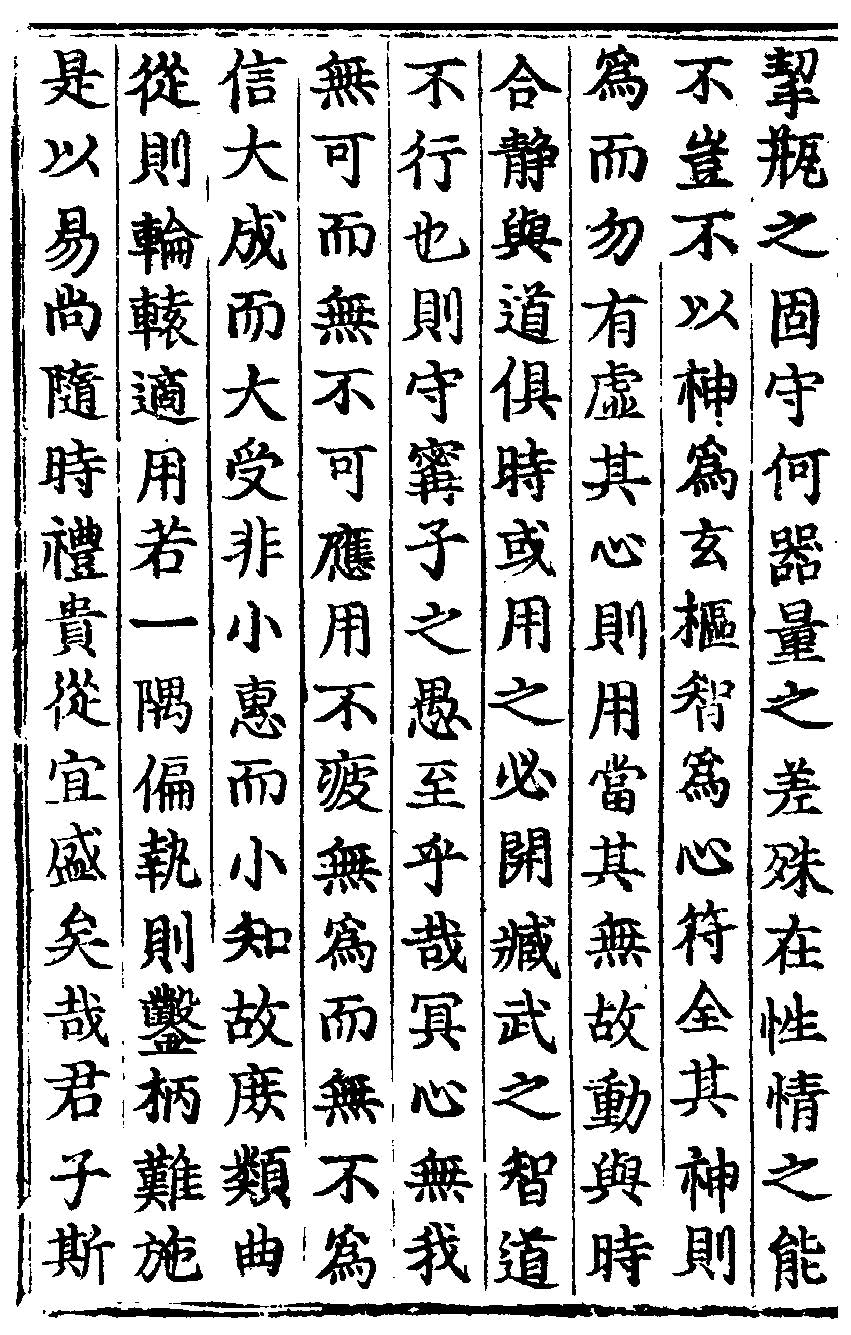 挈瓶之固守何器量之差殊在性情之能
不豈不以神爲玄樞智爲心符全其神則
爲而勿有虛其心則用當其無故動與時
合静與道俱時或用之必開臧武之智道
不行也則守甯子之愚至乎哉冥心無我
無可而無不可應用不疲無爲而無不爲
信大成而大受非小惠而小知故庻類曲
從則輪轅適用若一隅偏執則鑿柄難施
是以易尚隨時禮貴從宜盛矣哉君子斯